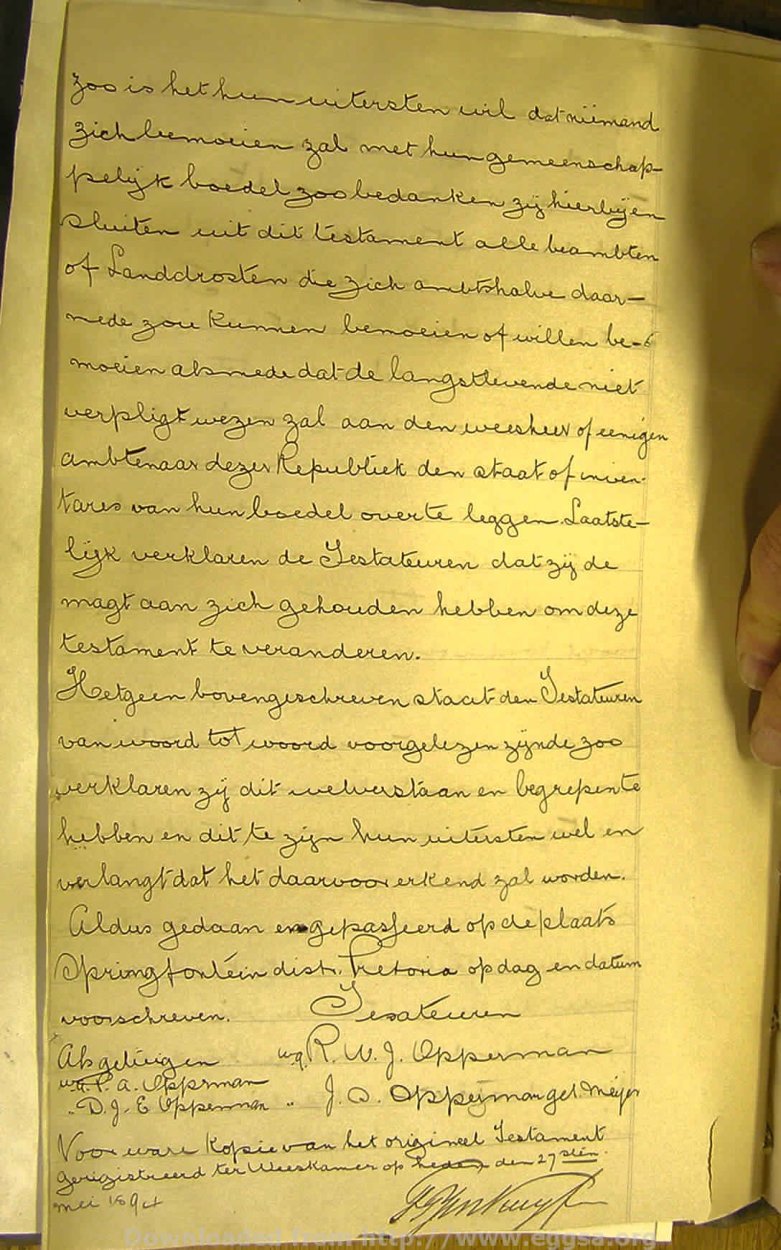 zoo is het hun uitersten wil dat niemand
zich bemoeien zal met hun gemeenschap-
pelijk boedel zoo bedanken zij hierbij en
sluiten uit dit testament alle beambten
of Landdrosten die zich ambtshalve daar-
mede zou kunnen bemoeien of willen be-
moeien alsmede dat de langstlevende niet
verpligt wezen zal aan den weesheer of eenigen
ambtenaar dezer Republiek den staat of inven-
taris van hun boedel over te leggen. Laatste-
lijk verklaren de Testateuren dat zij de
magt aan zich gehouden hebben om deze
testament te veranderen.
Hetgeen bovengeschreven staat den Testateuren
van woord tot woord voorgelezen zijnde zoo
verklaren zij dit wel verstaan en begrepen te
hebben en dit te zijn hun uitersten wel en
verlangt dat het daarvoor erkend zal worden.
Aldus gedaan en gepasseerd op de plaats
Springfontein distr. Pretoria op dag en datum
voorschreven. Tesateuren
Als getuigen wg R. W. J. Opperman
wg. P. A. Opperman
" D. J. E Opperman " J. S. Opperman geb. Meijer
Voor ware Kopie van het origineel Testament
geregistreerd ter Weeskamer op heden den 27 sten
mei 1894
Downloaded from http://www.eggsa.org